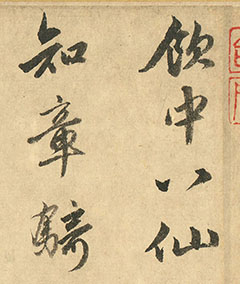 飲中八仙
知章騎